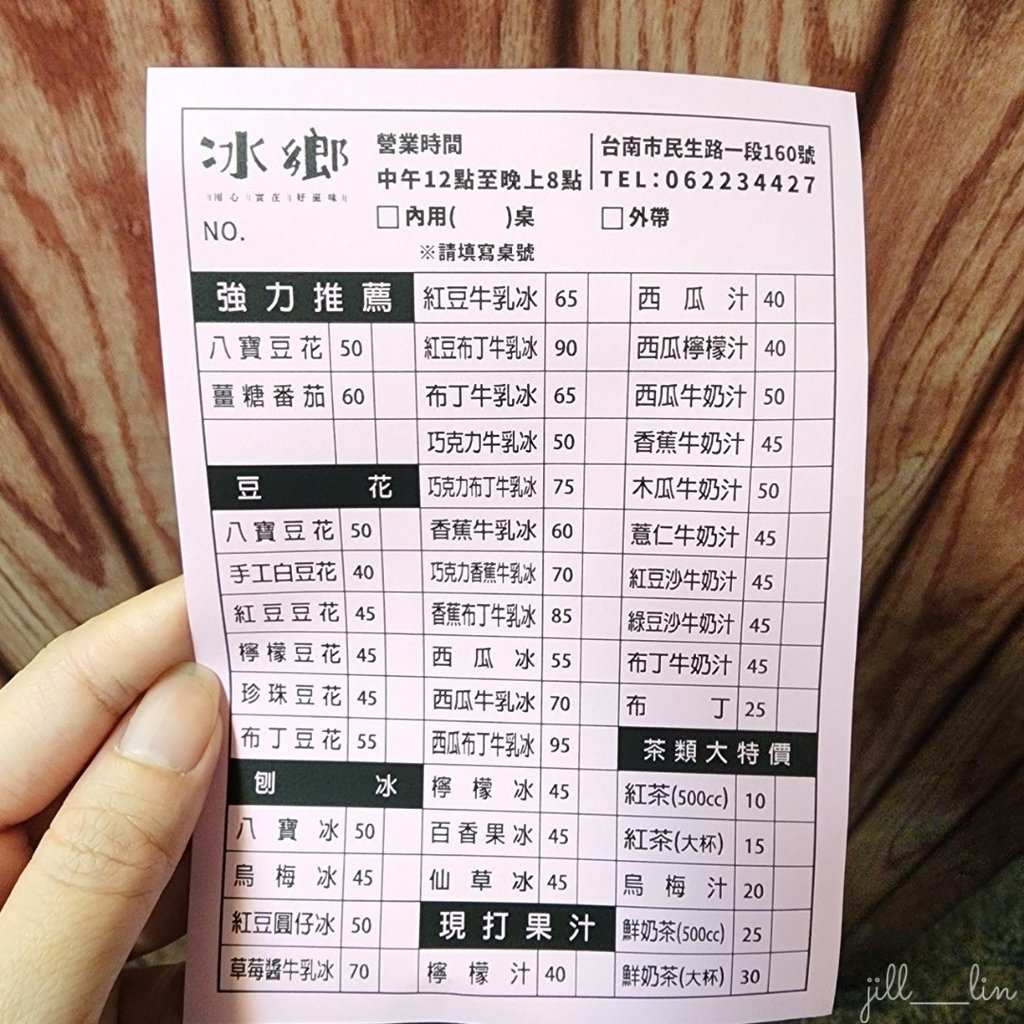 冰鄉
用心 實在 好滋味
NO.
營業時間
中午12點至晚上8點
台南市民生路一段160號
TEL:062234427
□內用( )桌 □外帶
※請填寫桌號
強力推薦
八寶豆花 50
薑糖番茄 60
豆花
八寶豆花 50
手工白豆花 40
紅豆豆花 45
檸檬豆花 45
珍珠豆花 45
布丁豆花 55
刨冰
八寶冰 50
烏梅冰 45
紅豆圓仔冰 50
草莓醬牛乳冰 70
紅豆牛乳冰 65
紅豆布丁牛乳冰 90
布丁牛乳冰 65
巧克力牛乳冰 50
巧克力布丁牛乳冰 75
香蕉牛乳冰 60
巧克力香蕉牛乳冰 70
香蕉布丁牛乳冰 85
西瓜冰 55
西瓜牛乳冰 70
西瓜布丁牛乳冰 95
檸檬冰 45
百香果冰 45
仙草冰 45
現打果汁
檸檬汁 40
西瓜汁 40
西瓜檸檬汁 40
西瓜牛奶汁 50
香蕉牛奶汁 45
木瓜牛奶汁 50
薏仁牛奶汁 45
紅豆沙牛奶汁 45
綠豆沙牛奶汁 45
布丁牛奶汁 45
布丁 25
茶類大特價
紅茶(500cc) 10
紅茶(大杯) 15
烏梅汁 20
鮮奶茶(500cc) 25
鮮奶茶(大杯) 30
jill___lin